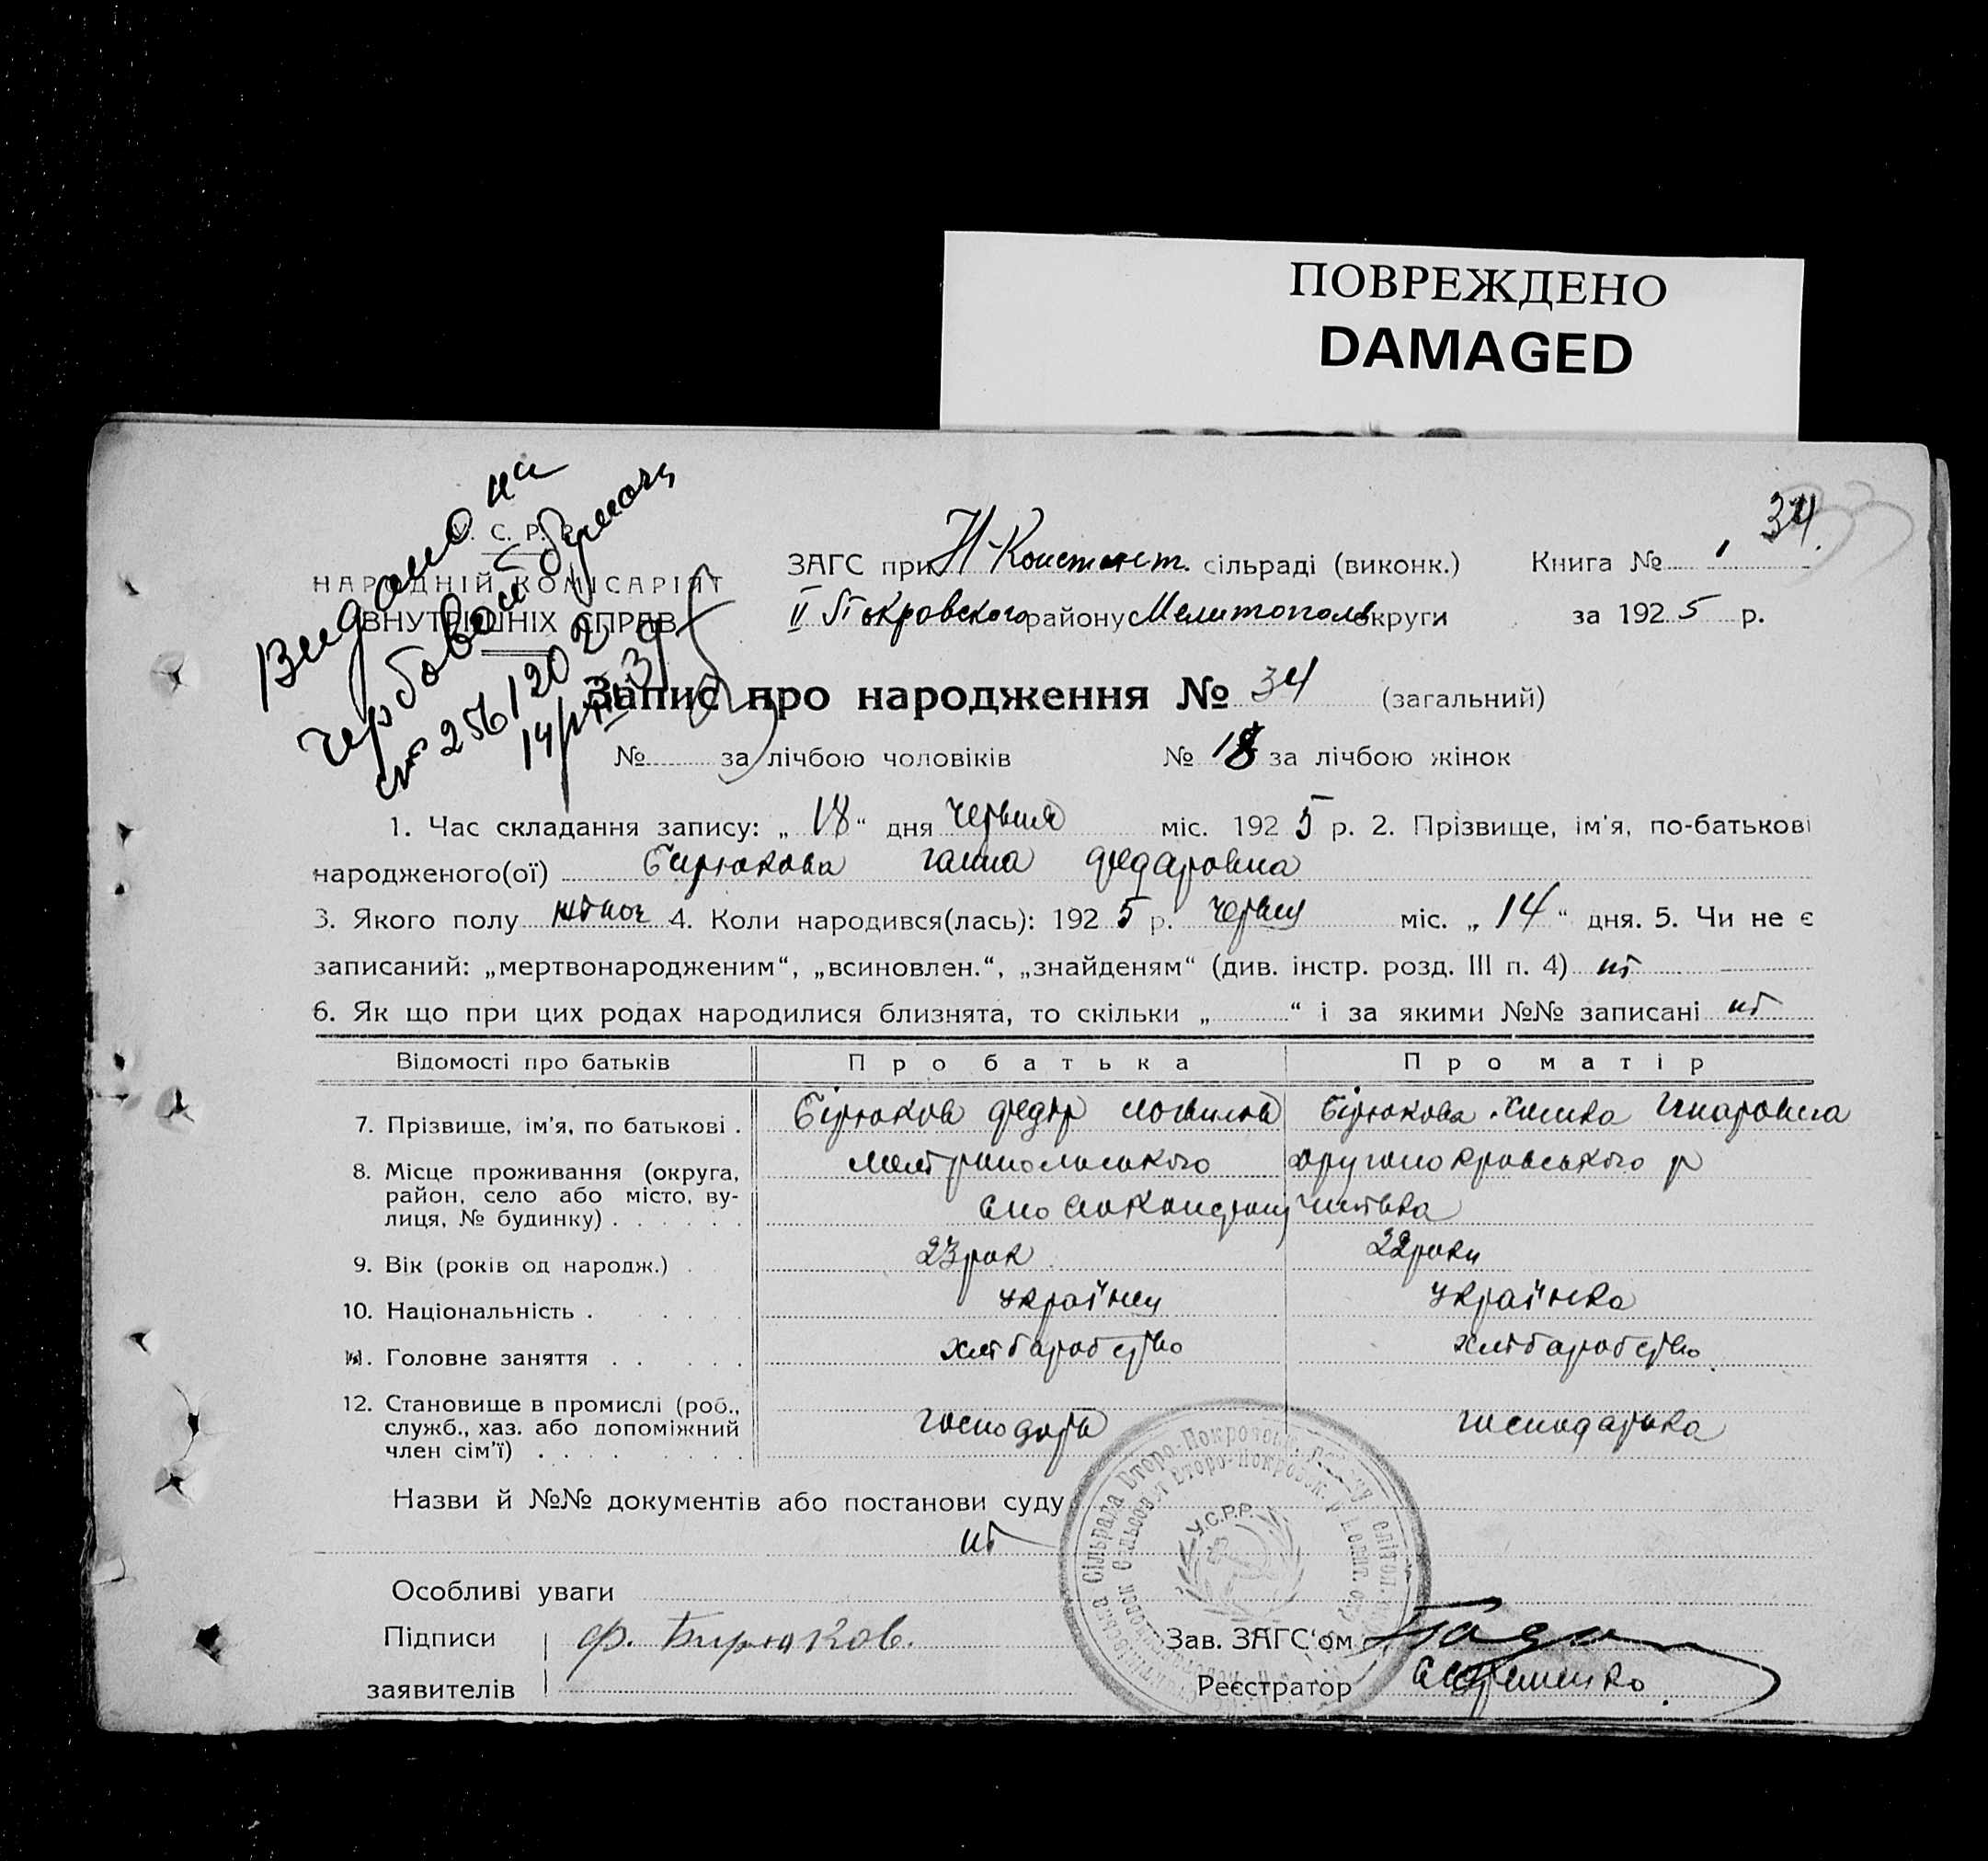 ПОВРЕЖДЕНО
DAMAGED
34.
У. С. Р. Р.
НАРОДНІЙ КОМІСАРІЯТ
ВНУТРІШНІХ СПРАВ
Видано на
14/VII 39
ЗАГС при Н-Констант. сільраді (виконк.) Книга № 1
II Покровского району Мелитополь округи за 1925 р.
Запис про народження № 34 (загальний)
№ за лічбою чоловіків № 18 за лічбою жінок
1. Час складання запису: „18“ дня червня міс. 1925 р. 2. Прізвище, ім'я, по-батькові
народженого(ої) Бирюкова Ганна Федаровна
3. Якого полу жіноч 4. Коли народився(лась): 1925 р. червня міс. „14“ дня. 5. Чи не є
записаний: „мертвонародженим“, „всиновлен.“, „знайденям“ (див. інстр. розд. III п. 4) ні
6. Як що при цих родах народилися близнята, то скільки „ “ і за якими №№ записані ні
Відомості про батьків Про батька Про матір
7. Прізвище, ім'я, по батькові . Бірюков Федір Бірюкова
8. Місце проживання (округа, район, село або місто, вулиця, № будинку) . . . . . . Мелітопольського другопокровського р
9. Вік (років од народж.) . 23 рок 22 роки
10. Національність . . . . . українец українка
11. Головне заняття . . . . . хліборобство хліборобство
12. Становище в промислі (роб., служб., хаз. або допоміжний член сім'ї) . . . . . . . . господарь господарка
Назви й №№ документів або постанови суду
ні
У.С.Р.Р.
Особливі уваги
Підписи Ф. Бирюков. Зав. ЗАГС'ом
заявителів Реєстратор